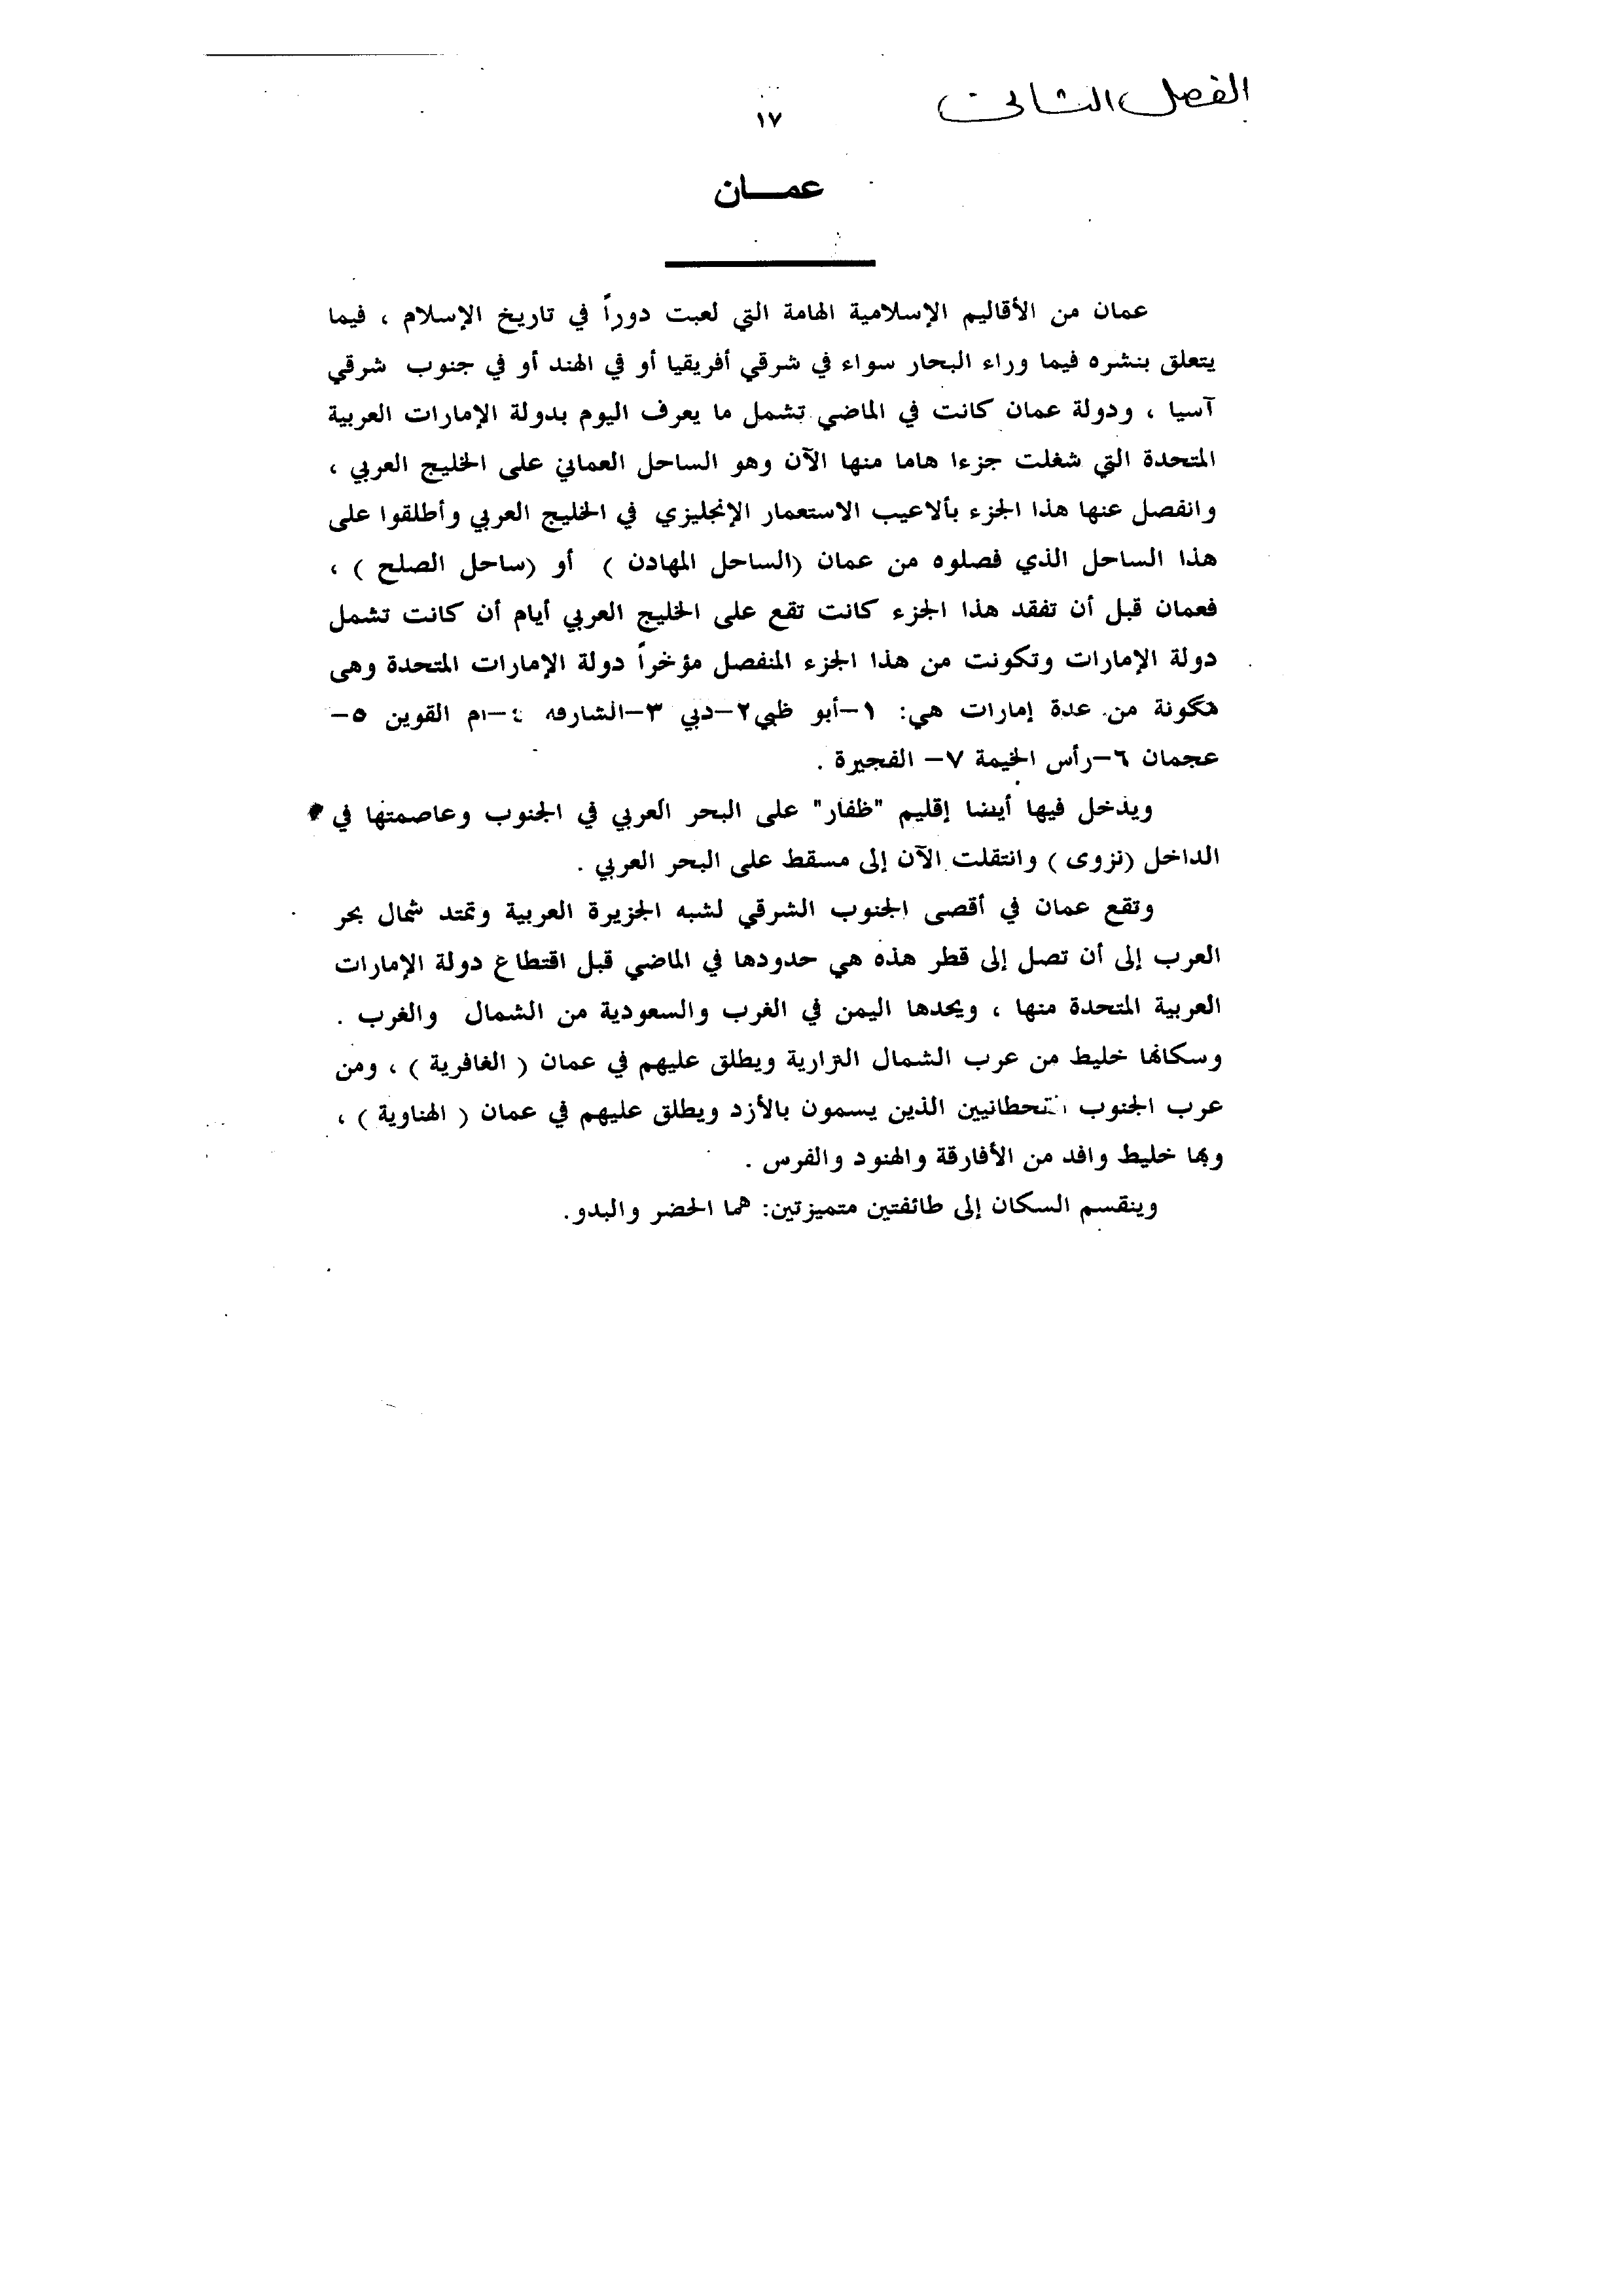 الفصل الثاني
١٧
عمـــان
عمان من الأقاليم الإسلامية الهامة التي لعبت دوراً في تاريخ الإسلام ، فيما
يتعلق بنشره فيما وراء البحار سواء في شرقي أفريقيا أو في الهند أو في جنوب شرقي
آسيا ، ودولة عمان كانت في الماضي تشمل ما يعرف اليوم بدولة الإمارات العربية
المتحدة التي شغلت جزءا هاما منها الآن وهو الساحل العماني على الخليج العربي ،
وانفصل عنها هذا الجزء بألاعيب الاستعمار الإنجليزي في الخليج العربي وأطلقوا على
هذا الساحل الذي فصلوه من عمان (الساحل المهادن ) أو (ساحل الصلح ) ،
فعمان قبل أن تفقد هذا الجزء كانت تقع على الخليج العربي أيام أن كانت تشمل
دولة الإمارات وتكونت من هذا الجزء المنفصل مؤخراً دولة الإمارات المتحدة وهى
مكونة من عدة إمارات هي: ١-أبو ظبي٢-دبي ٣-الشارقة ٤-أم القوين ٥-
عجمان ٦-رأس الخيمة ٧- الفجيرة .
ويدخل فيها أيضا إقليم "ظفار" على البحر العربي في الجنوب وعاصمتها في
الداخل (نزوى ) وانتقلت الآن إلى مسقط على البحر العربي .
وتقع عمان في أقصى الجنوب الشرقي لشبه الجزيرة العربية وتمتد شمال بحر
العرب إلى أن تصل إلى قطر هذه هي حدودها في الماضي قبل اقتطاع دولة الإمارات
العربية المتحدة منها ، ويحدها اليمن في الغرب والسعودية من الشمال والغرب .
وسكانها خليط من عرب الشمال النزارية ويطلق عليهم في عمان ( الغافرية ) ، ومن
عرب الجنوب القحطانيين الذين يسمون بالأزد ويطلق عليهم في عمان ( الهناوية ) ،
وبها خليط وافد من الأفارقة والهنود والفرس .
وينقسم السكان إلى طائفتين متميزتين: هما الحضر والبدو.